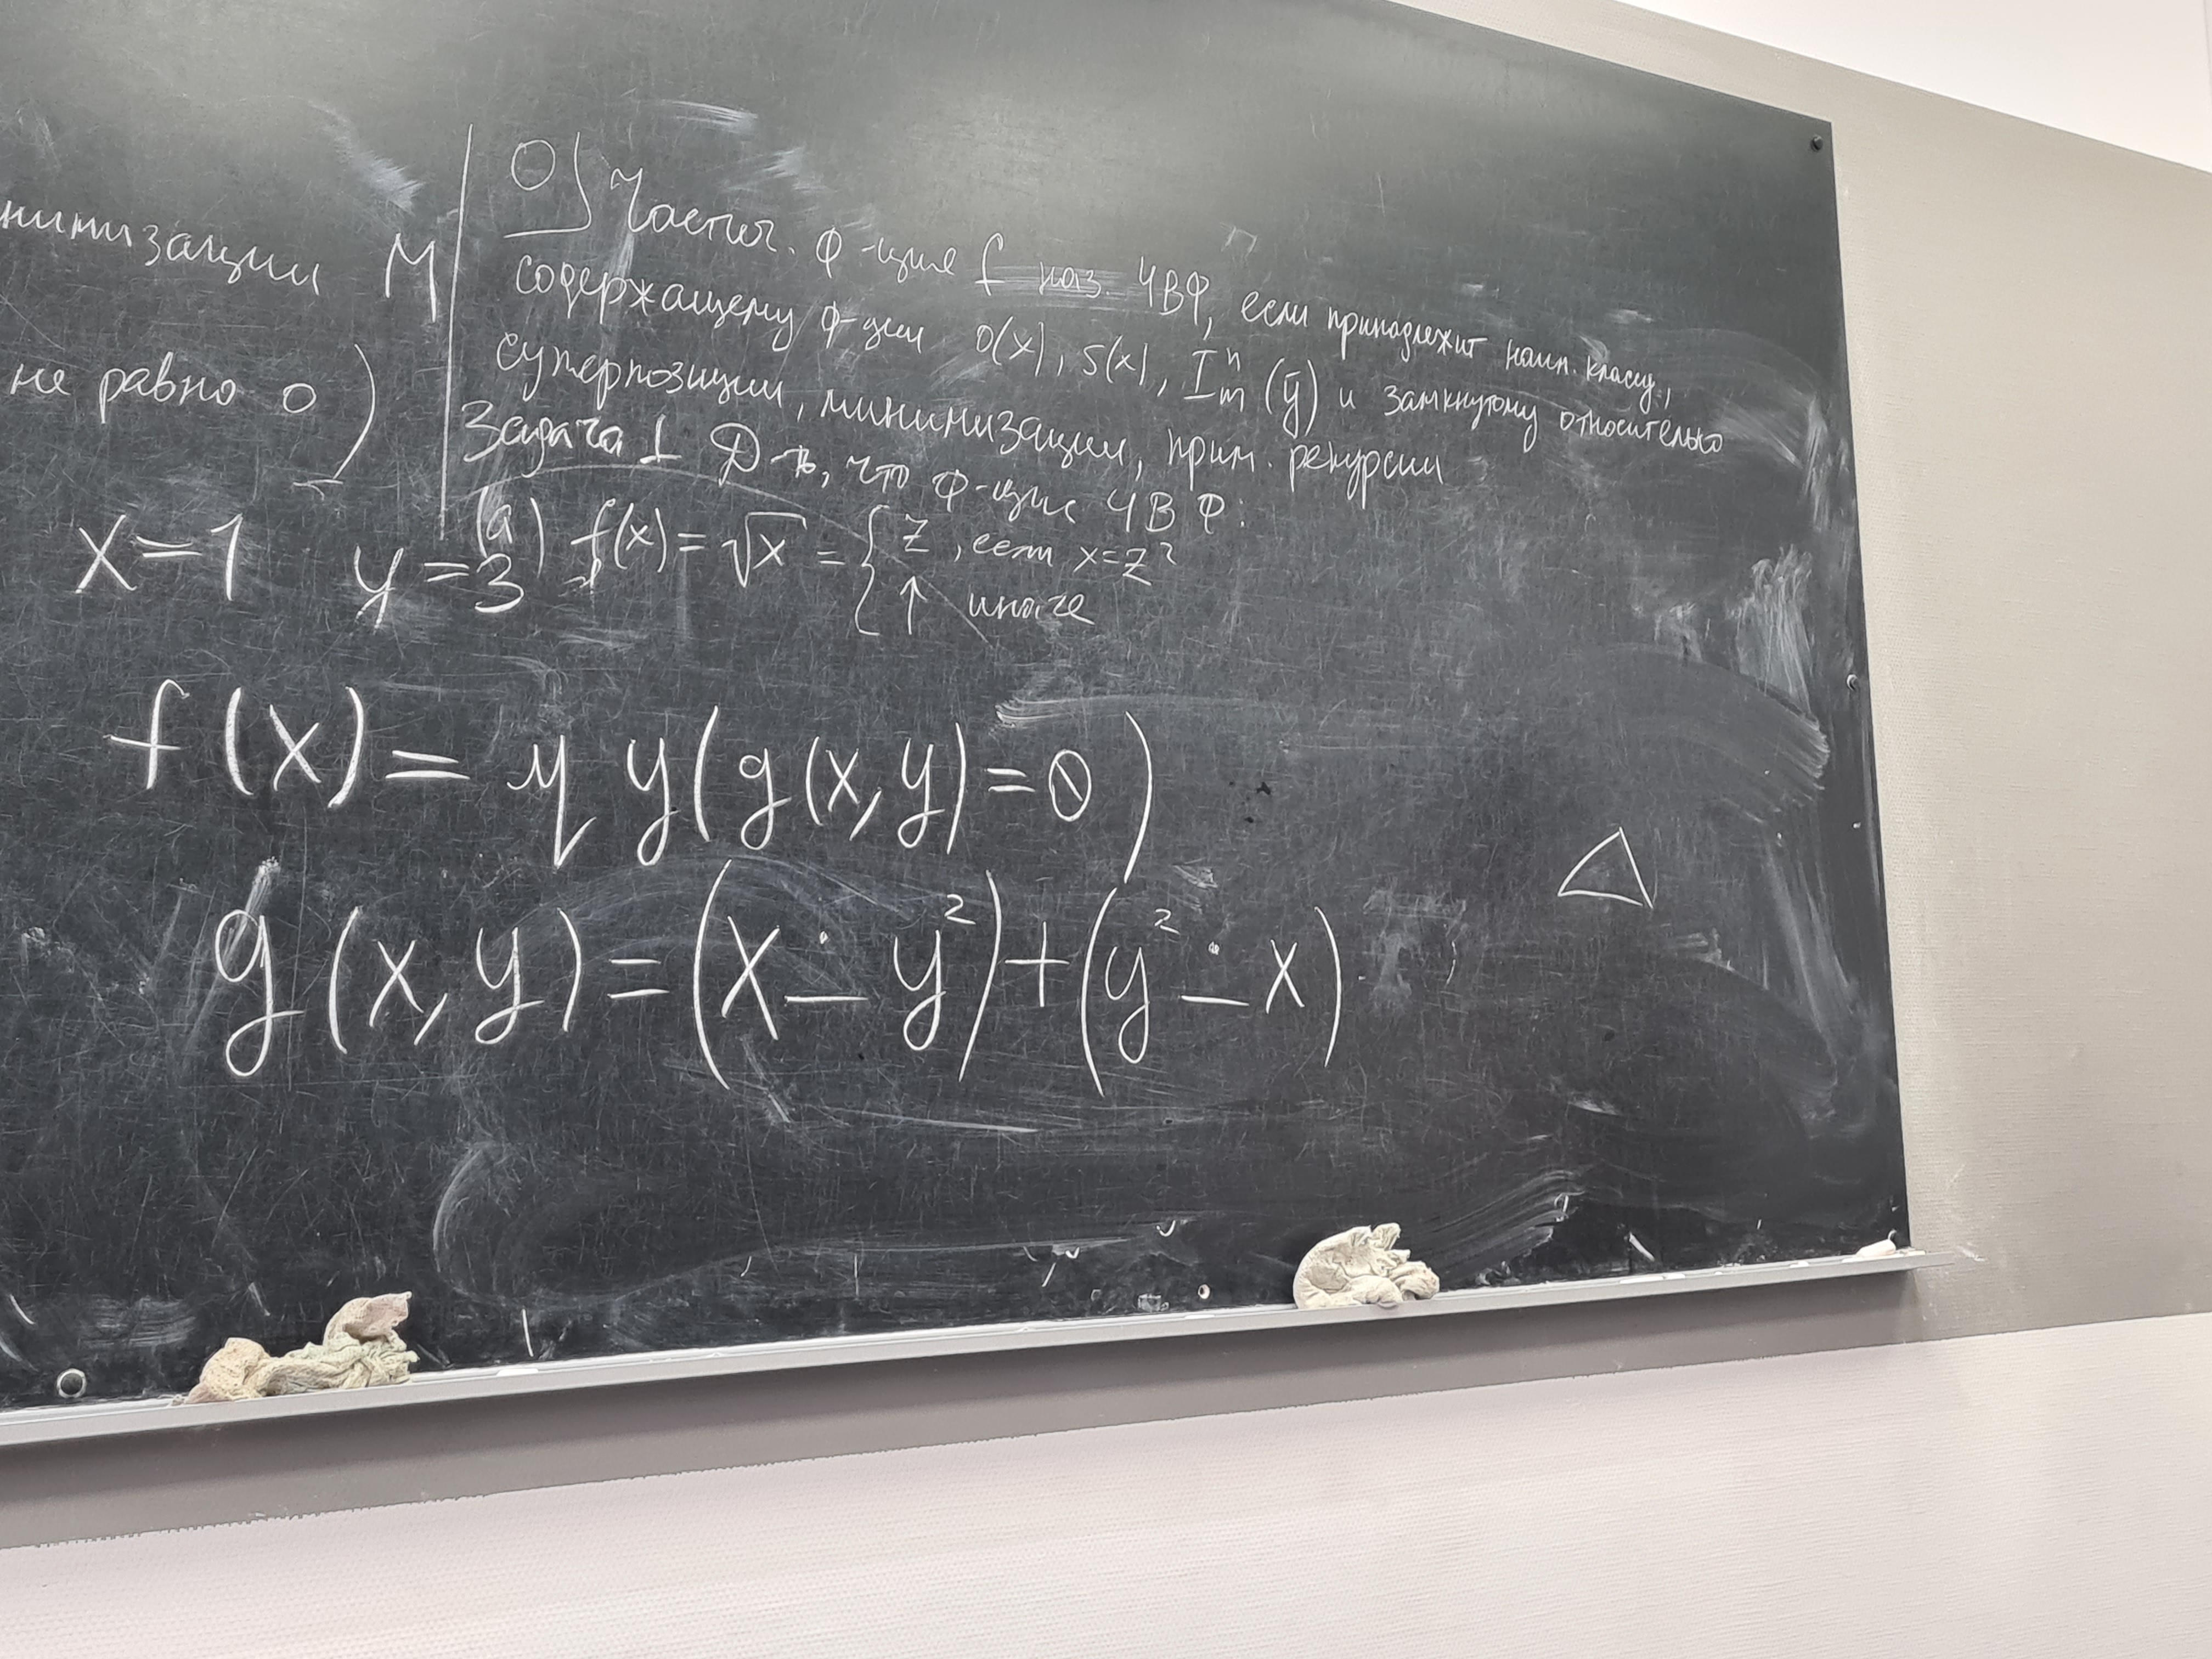 нимизации M
не равно 0 )
O) Частич. ф-ция f наз. ЧВФ, если принадлежит наим. классу,
содержащему ф-ции o(x), s(x), Iⁿₘ(ȳ) и замкнутому относительно
суперпозиции, минимизации, прим. рекурсии
Задача 1 Д-ть, что ф-ция ЧВФ:
(a) f(x) = √x = { z, если x=z²
↑ иначе
x=1 y=3
f(x) = μ y(g(x,y)=0)
g(x,y) = (x ∸ y²)+(y² ∸ x)
△